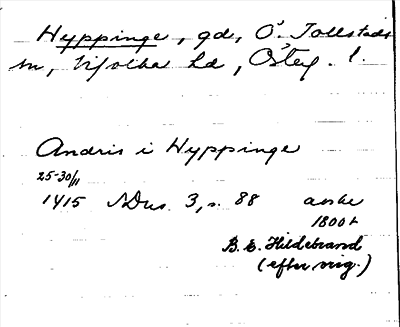 Hyppinge, gd, Ö. Tollstads
sn, Vifolka hd, Östeg. l.
Andris i Hyppinge
25-30/11
1415 NDns 3, s. 88 avskr
1800t
B. E. Hildebrand
(efter orig.)